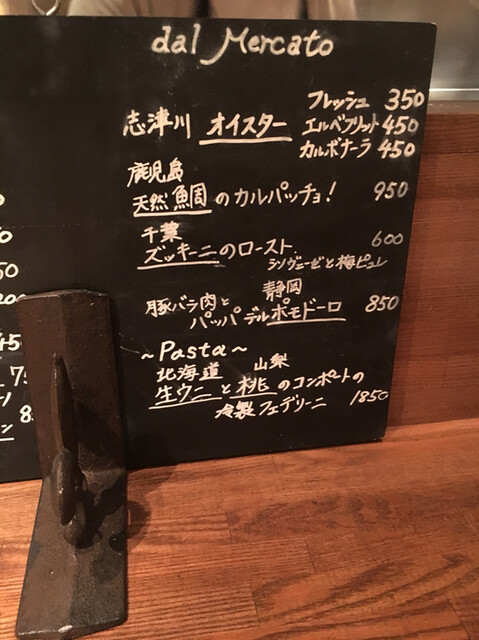 dal Mercato
フレッシュ 350
志津川 オイスター エルベブリット 450
カルボナーラ 450
鹿児島
天然 鯛 のカルパッチョ! 950
千葉
ズッキーニのロースト 600
ジノヴェーゼと梅ピュレ
静岡
豚バラ肉と
パッパデルポモドーロ 850
~Pasta~
北海道 山梨
生ウニと桃のコンポートの
冷製フェデリーニ 1850